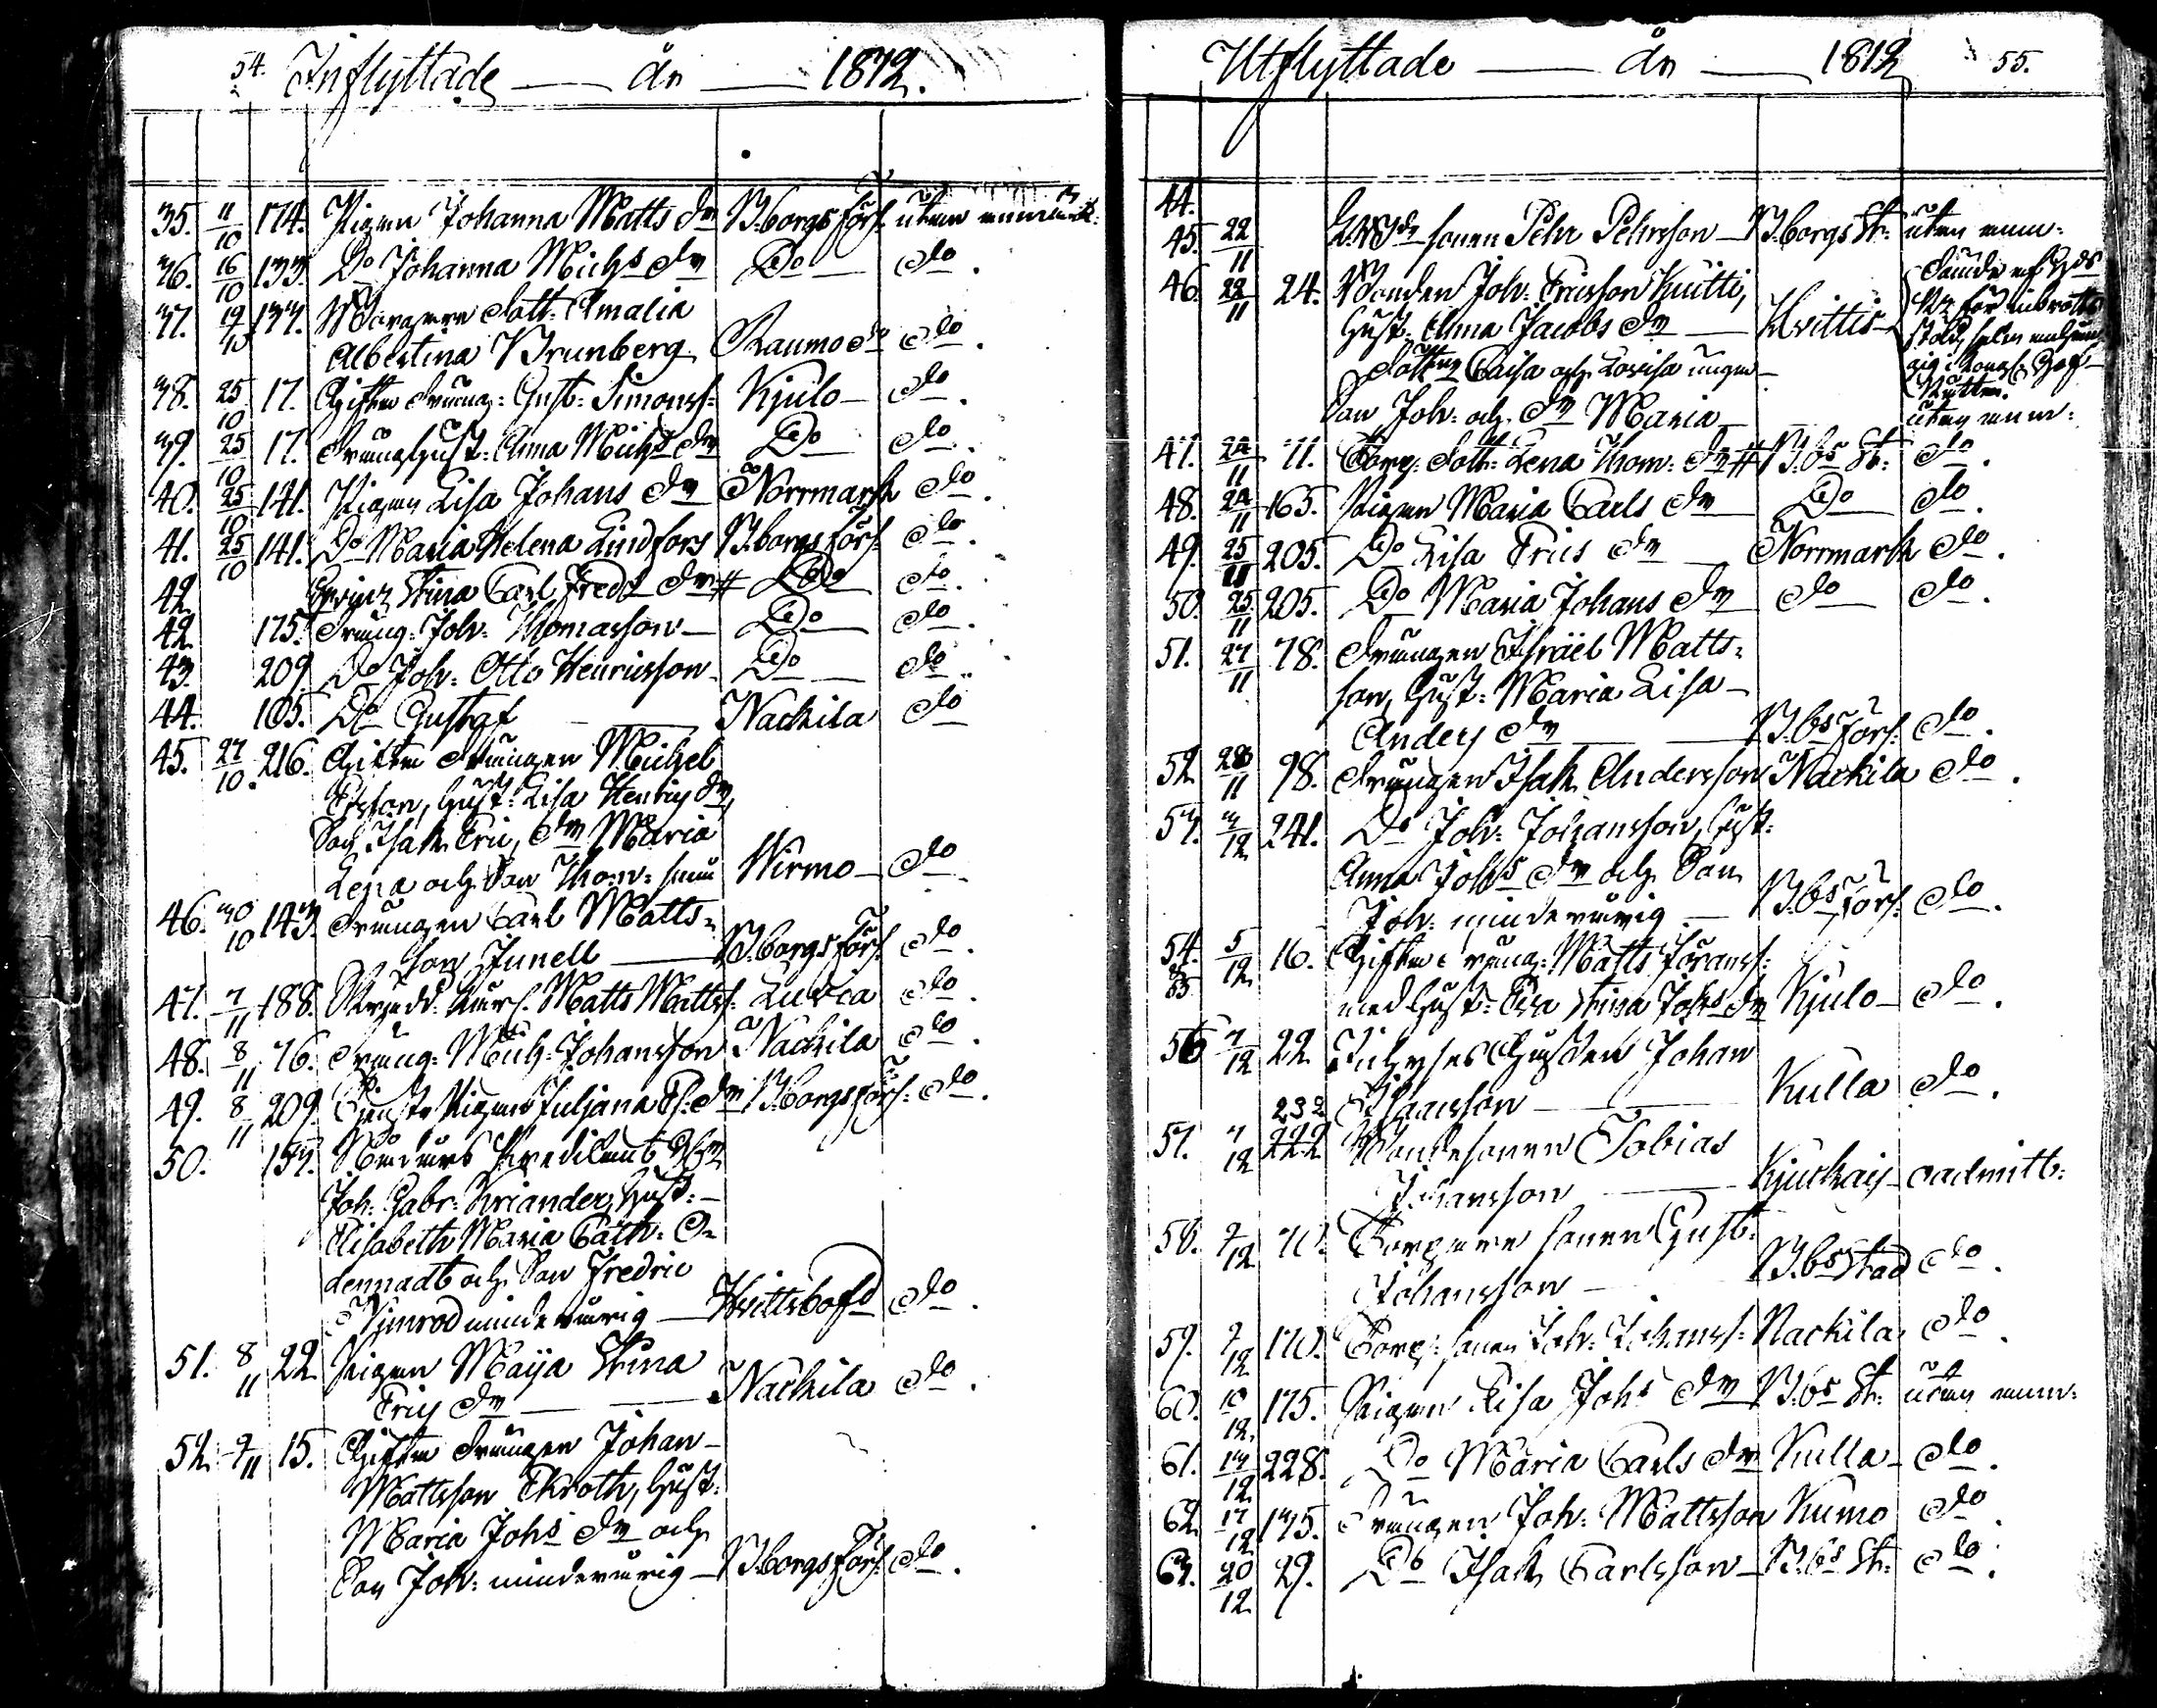 54. Inflyttade — år — 1872.
35. 11/10 174. Pigan Johanna Matts dr B:borgs förs: utan anmärk:
36. 16/10 133. Do Johanna Michs dr Do do.
37. 19/10 Borgare dott: Amalia
Albertina Brunberg Raumo do.
38. 25/10 17. Gifta dräng: Gust: Simonss: Kjulo do.
39. 25/10 17. Dräng hust: Anna Michs dr Do do.
40. 25/10 141. Pigan Lisa Johans dr Norrmark do.
41. 25/10 141. Do Maria Helena Lindfors B:borgs förs: do.
42 Stina Carl Fredr dr # Do do.
42. 175. Dräng: Joh: Thomasson Do do.
43. 209 Do Joh: Otto Henricsson Do do.
44. 105. Do Gustaf Nackila do
45. 27/10. 216. Gifta Drängen Michel
Ersson, Hust: Lisa Henrics dr,
Son Isak Eric, dr Maria
Lena och Son Thom: Wirmo do.
46. 30/10 143. Drängen Carl Matts-
son Junell B:borgs förs: do.
47. 7/11 188. Matts Mattss: Luvia do.
48. 8/11 76. Dräng: Mich: Johansson Nackila do.
49. 8/11 209. Pigan Juljana dr B:borgs förs: do.
50. 157.
Joh: Gabr: Kriander, Hust:
Elisabeth Maria Cath: O-
dennadt och Son Fredric
Nimrod minderårig Hvittisbofd do.
51. 8/11 22 Pigan Maija Stina
Erics dr Nackila do.
52. 9/11 15. Gifta Drängen Johan
Mattsson Ekroth, Hust:
Maria Johs dr och
Son Joh: minderårig B:borgs förs: do.
Utflyttade — år — 1812 55.
44.
45. 22/11 sonen Pehr Pehrsson B:borgs St: utan anm:
46. 22/11 24. Bonden Joh: Ericsson Knitti,
Hust: Anna Jacobs dr Hvittis
Döttrar Caisa och Lovisa
Son Joh: och dr Maria utan anm:
47. 24/11 71. Torp: dott: Lena Thom: dr # B:bs St: do.
48. 24/11 165. Pigan Maria Carls dr Do do.
49. 25/11 205. Do Lisa Erics dr Norrmark do.
50. 25/11 205. Do Maria Johans dr do do.
51. 27/11 78. Drängen Israël Matts-
son, Hust: Maria Lisa
Anders dr B:bs förs: do.
52 28/11 98. Drängen Isak Andersson Nackila do.
53. 3/12 241. Do Joh: Johansson, Hust:
Anna Johs dr och Son
Joh: minderårig B:bs förs: do.
54. 5/12 16. Gifta dräng: Matts Göranss:
55 med Hust: Stina Johs dr Kjulo do.
56 7/12 22 Johan
Isaacsson Kulla do.
232
57. 7/12 222 Bondesonen Tobias
Johansson Kjuckais oadmitt:
58. 9/12 70. Torpare sonen Gust:
Johansson B:bs Stad do.
59. 9/12 170. Torp: sonen Joh: Johanss: Nackila do.
60. 10/12 175. Pigan Lisa Johs dr B:bs St: utan anm:
61. 14/12 228. Do Maria Carls dr Kulla do.
62. 17/12 175. Drängen Joh: Mattsson Kumo do.
63. 20/12 29. Do Isak Carlsson B:bs St: do.